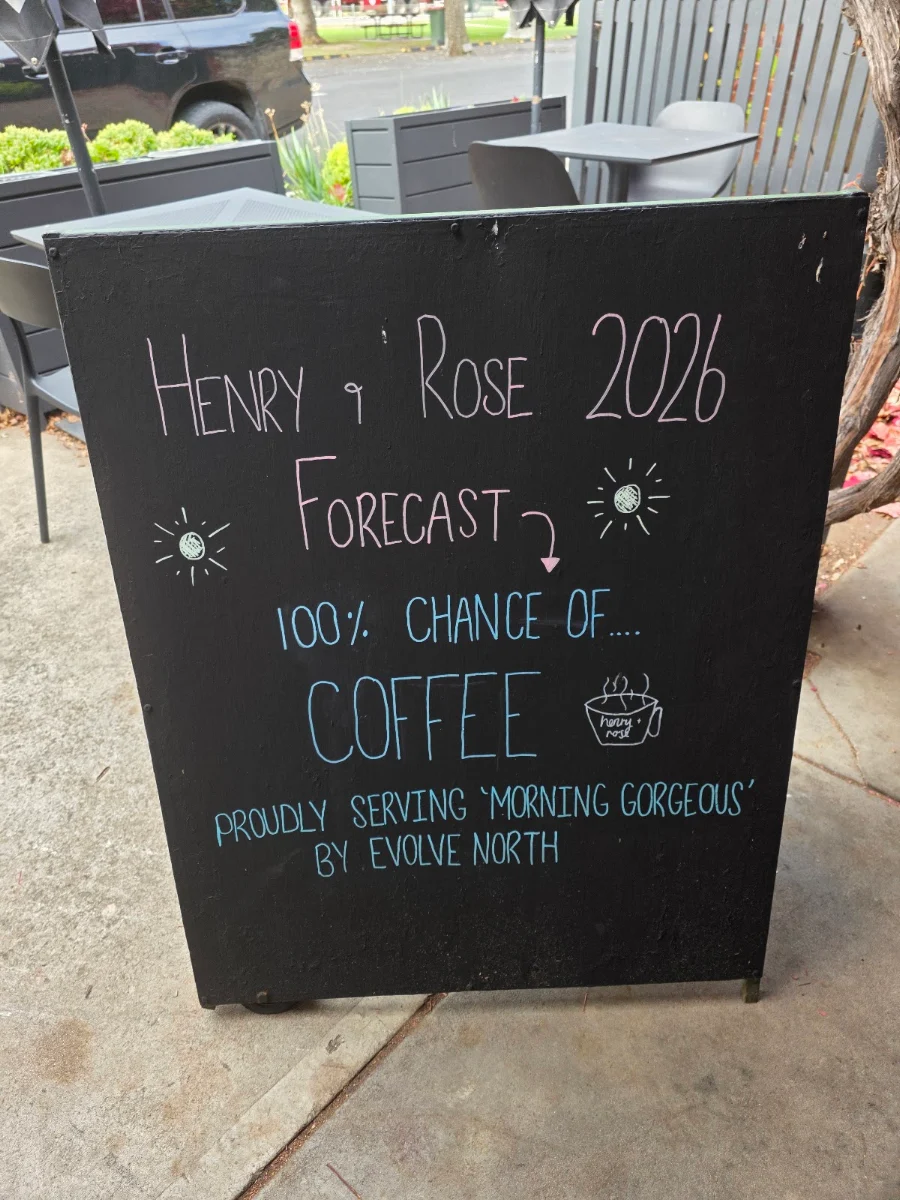 HENRY & ROSE 2026
FORECAST
100% CHANCE OF....
COFFEE
henry +
rose
PROUDLY SERVING 'MORNING GORGEOUS'
BY EVOLVE NORTH